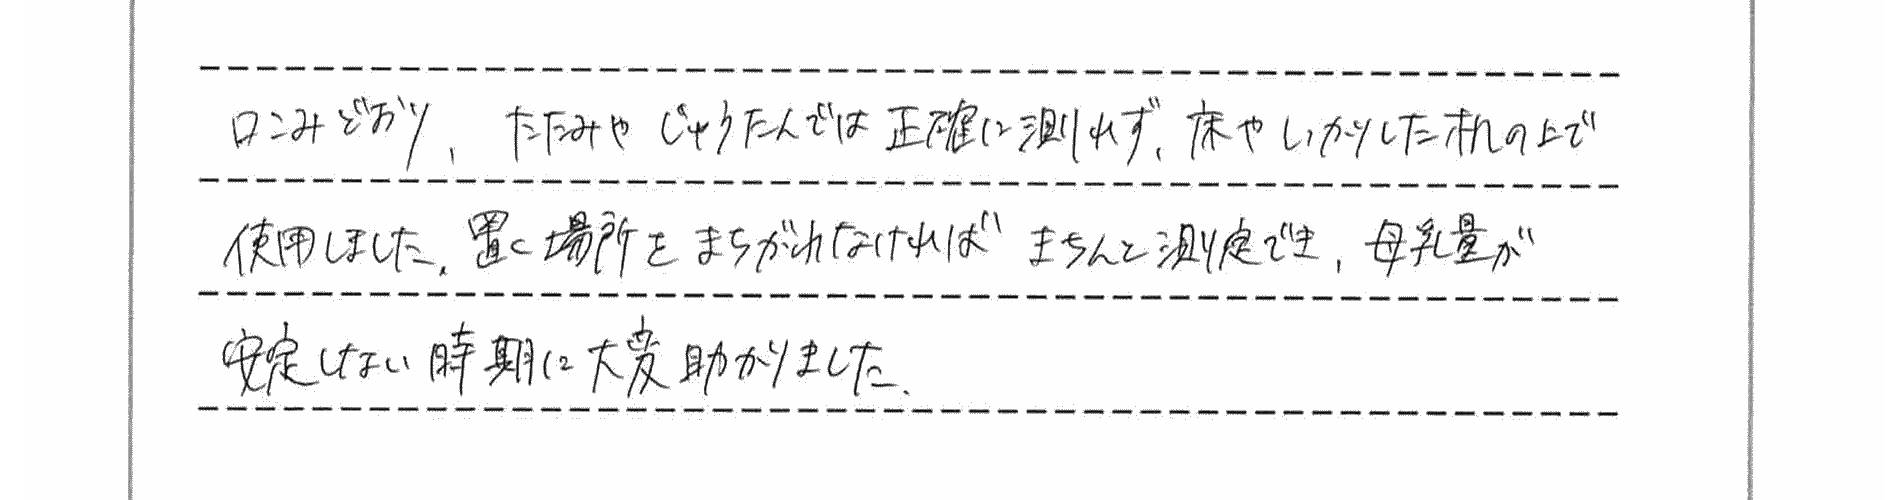 口こみどおり、たたみやじゅうたんでは正確に測れず、床やしっかりした机の上で
使用しました。置く場所をまちがわなければきちんと測定でき、母乳量が
安定しない時期に大変助かりました。